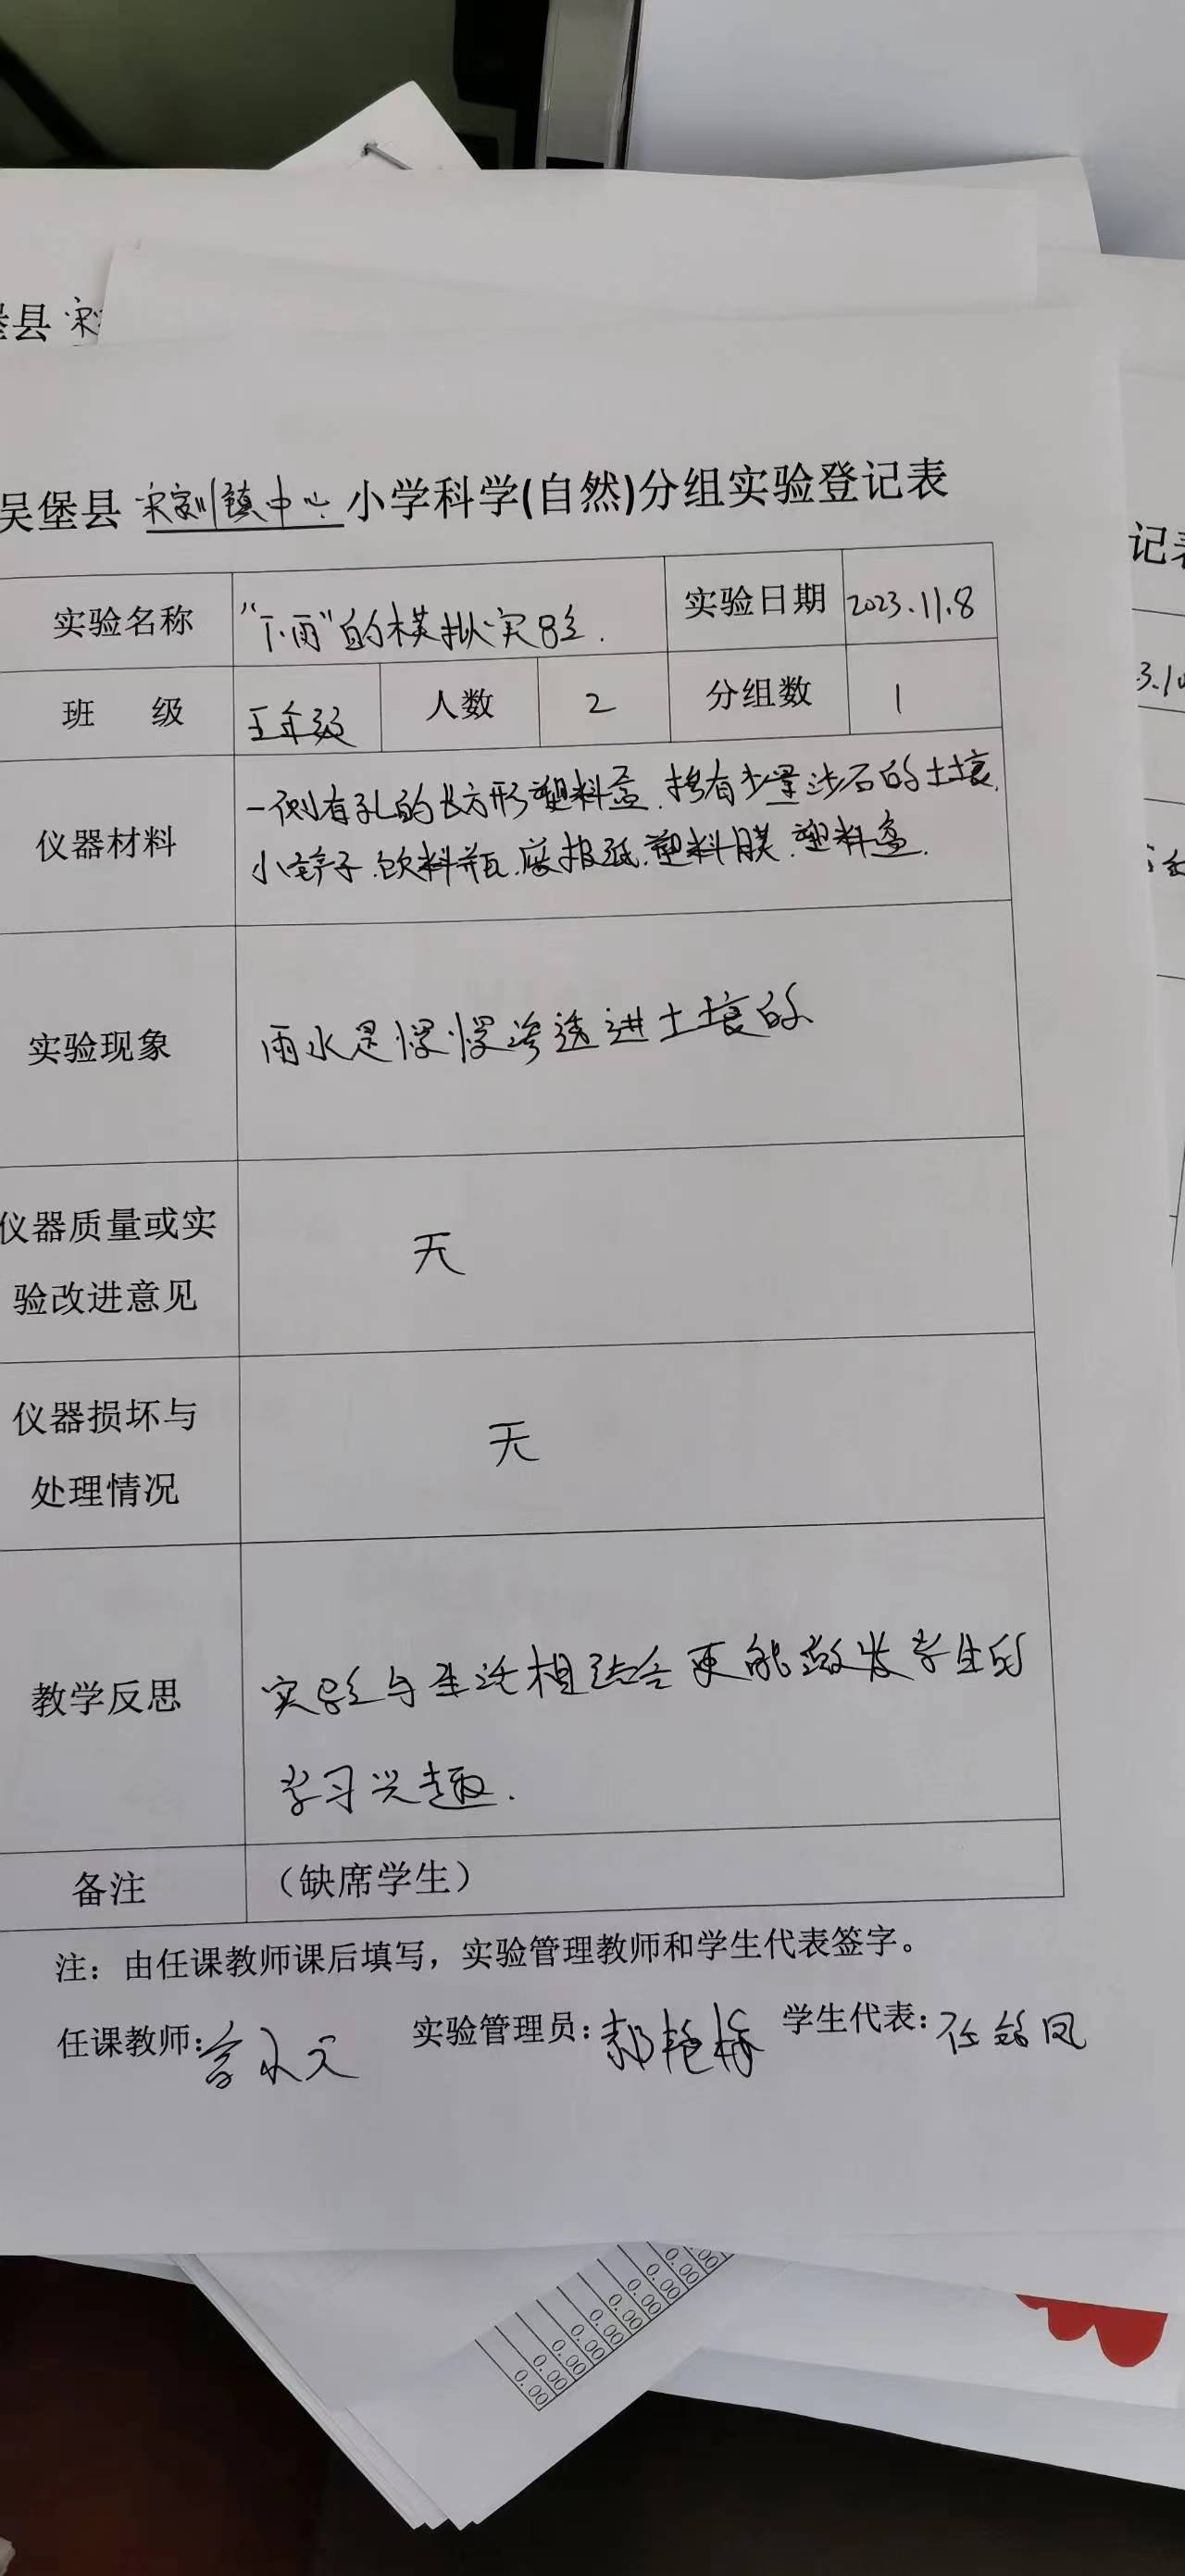 县 宋
吴堡县 宋家川镇中心 小学科学(自然)分组实验登记表
记表
实验名称 "下雨"的模拟实验. 实验日期 2023.11.8
班 级 五年级 人数 2 分组数 1
仪器材料 一侧有孔的长方形塑料盒.掺有少量沙石的土壤.
小铲子.饮料瓶.废报纸.塑料膜.塑料盒.
实验现象 雨水是慢慢渗透进土壤的
仪器质量或实
验改进意见 无
仪器损坏与
处理情况 无
教学反思 实验与生活相结合更能激发学生的
学习兴趣.
备注 （缺席学生）
注：由任课教师课后填写，实验管理教师和学生代表签字。
任课教师: 实验管理员: 学生代表:
0.00
0.00
0.00
0.00
0.00
0.00
0.00